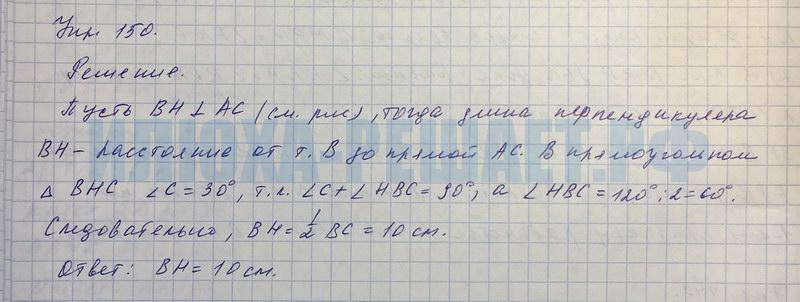 Упр. 150.
Решение.
Пусть BH ⊥ AC (см. рис), тогда длина перпендикуляра
BH - расстояние от т. B до прямой AC. В прямоугольном
△ BHC ∠C = 30°, т.к. ∠C + ∠HBC = 90°, а ∠HBC = 120° : 2 = 60°.
Следовательно, BH = 1/2 BC = 10 см.
Ответ: BH = 10 см.
ИЛЮХА-РЕШАЕТ.РФ